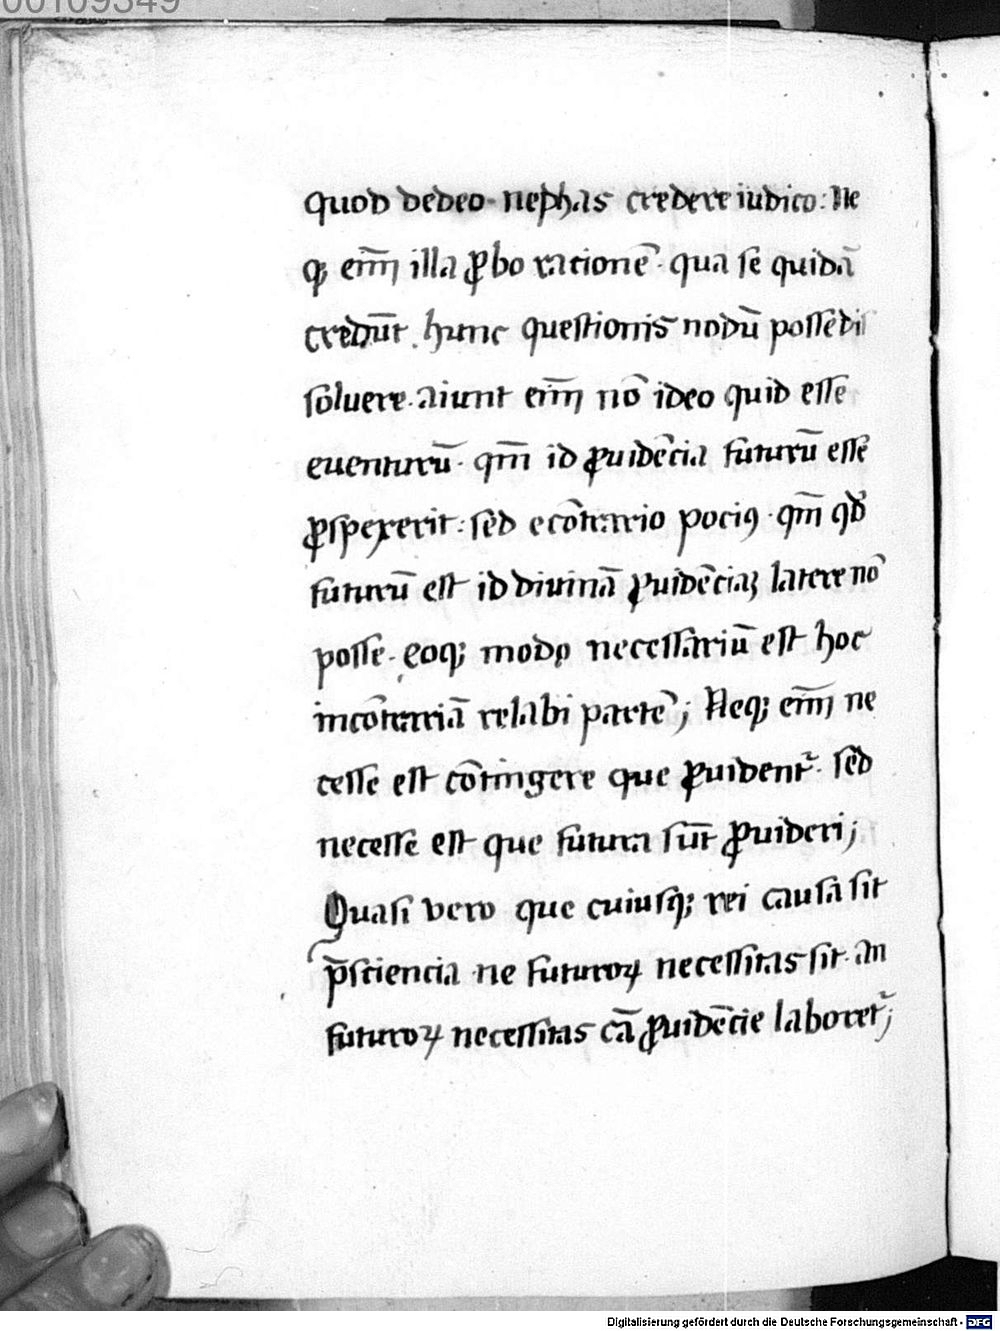 00109349
quod dedeo· nephas credere iudico: Ne
qꝫ eni̅m illa ꝓbo racione̅· qua se quida̅
credu̅t . hunc questionis nodu̅ posse dis
soluere· aiunt eni̅m no̅ ideo quid esse
euenturu̅· qm̅ id ꝓuide̅cia futuru̅ esse
ꝓspexerit: sed eco̅trario pociꝰ · qm̅ qd̅
futuru̅ est id diuina̅ ꝓuide̅ciaꝫ latere no̅
posse· eoqꝫ modo necessariu̅ est hoc
inco̅traria̅ relabi parte̅; Neqꝫ eni̅m ne
cesse est co̅tingere que ꝓuident᷑· sed
necesse est que futura su̅t ꝓuideri;
Quasi vero que cuiusqꝫ rei causa sit
p̅sciencia ne futuroꝝ necessitas sit· an
futuroꝝ necessitas ca̅ ꝓuide̅cie laboret᷑;
Digitalisierung gefördert durch die Deutsche Forschungsgemeinschaft - DFG